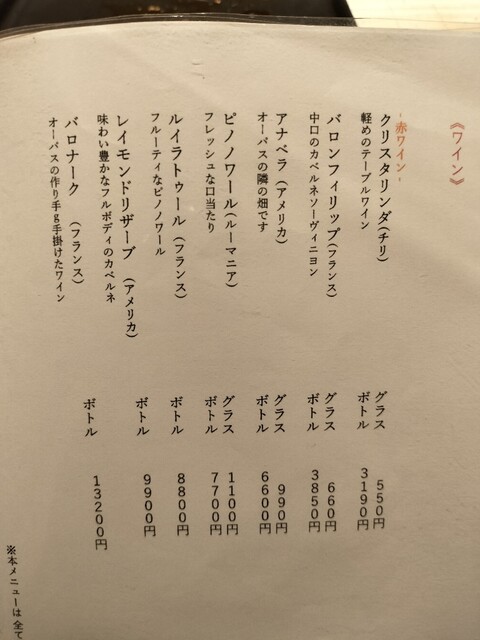 《ワイン》
-赤ワイン-
クリスタリンダ(チリ) グラス 550円
軽めのテーブルワイン ボトル 3190円
バロンフィリップ(フランス) グラス 660円
中口のカベルネソーヴィニヨン ボトル 3850円
アナベラ(アメリカ) グラス 990円
オーパスの隣の畑です ボトル 6600円
ピノノワール(ルーマニア) グラス 1100円
フレッシュな口当たり ボトル 7700円
ルイラトゥール(フランス) ボトル 8800円
フルーティなピノノワール
レイモンドリザーブ (アメリカ) ボトル 9900円
味わい豊かなフルボディのカベルネ
バロナーク (フランス) ボトル 13200円
オーパスの作り手g手掛けたワイン
※本メニューは全て